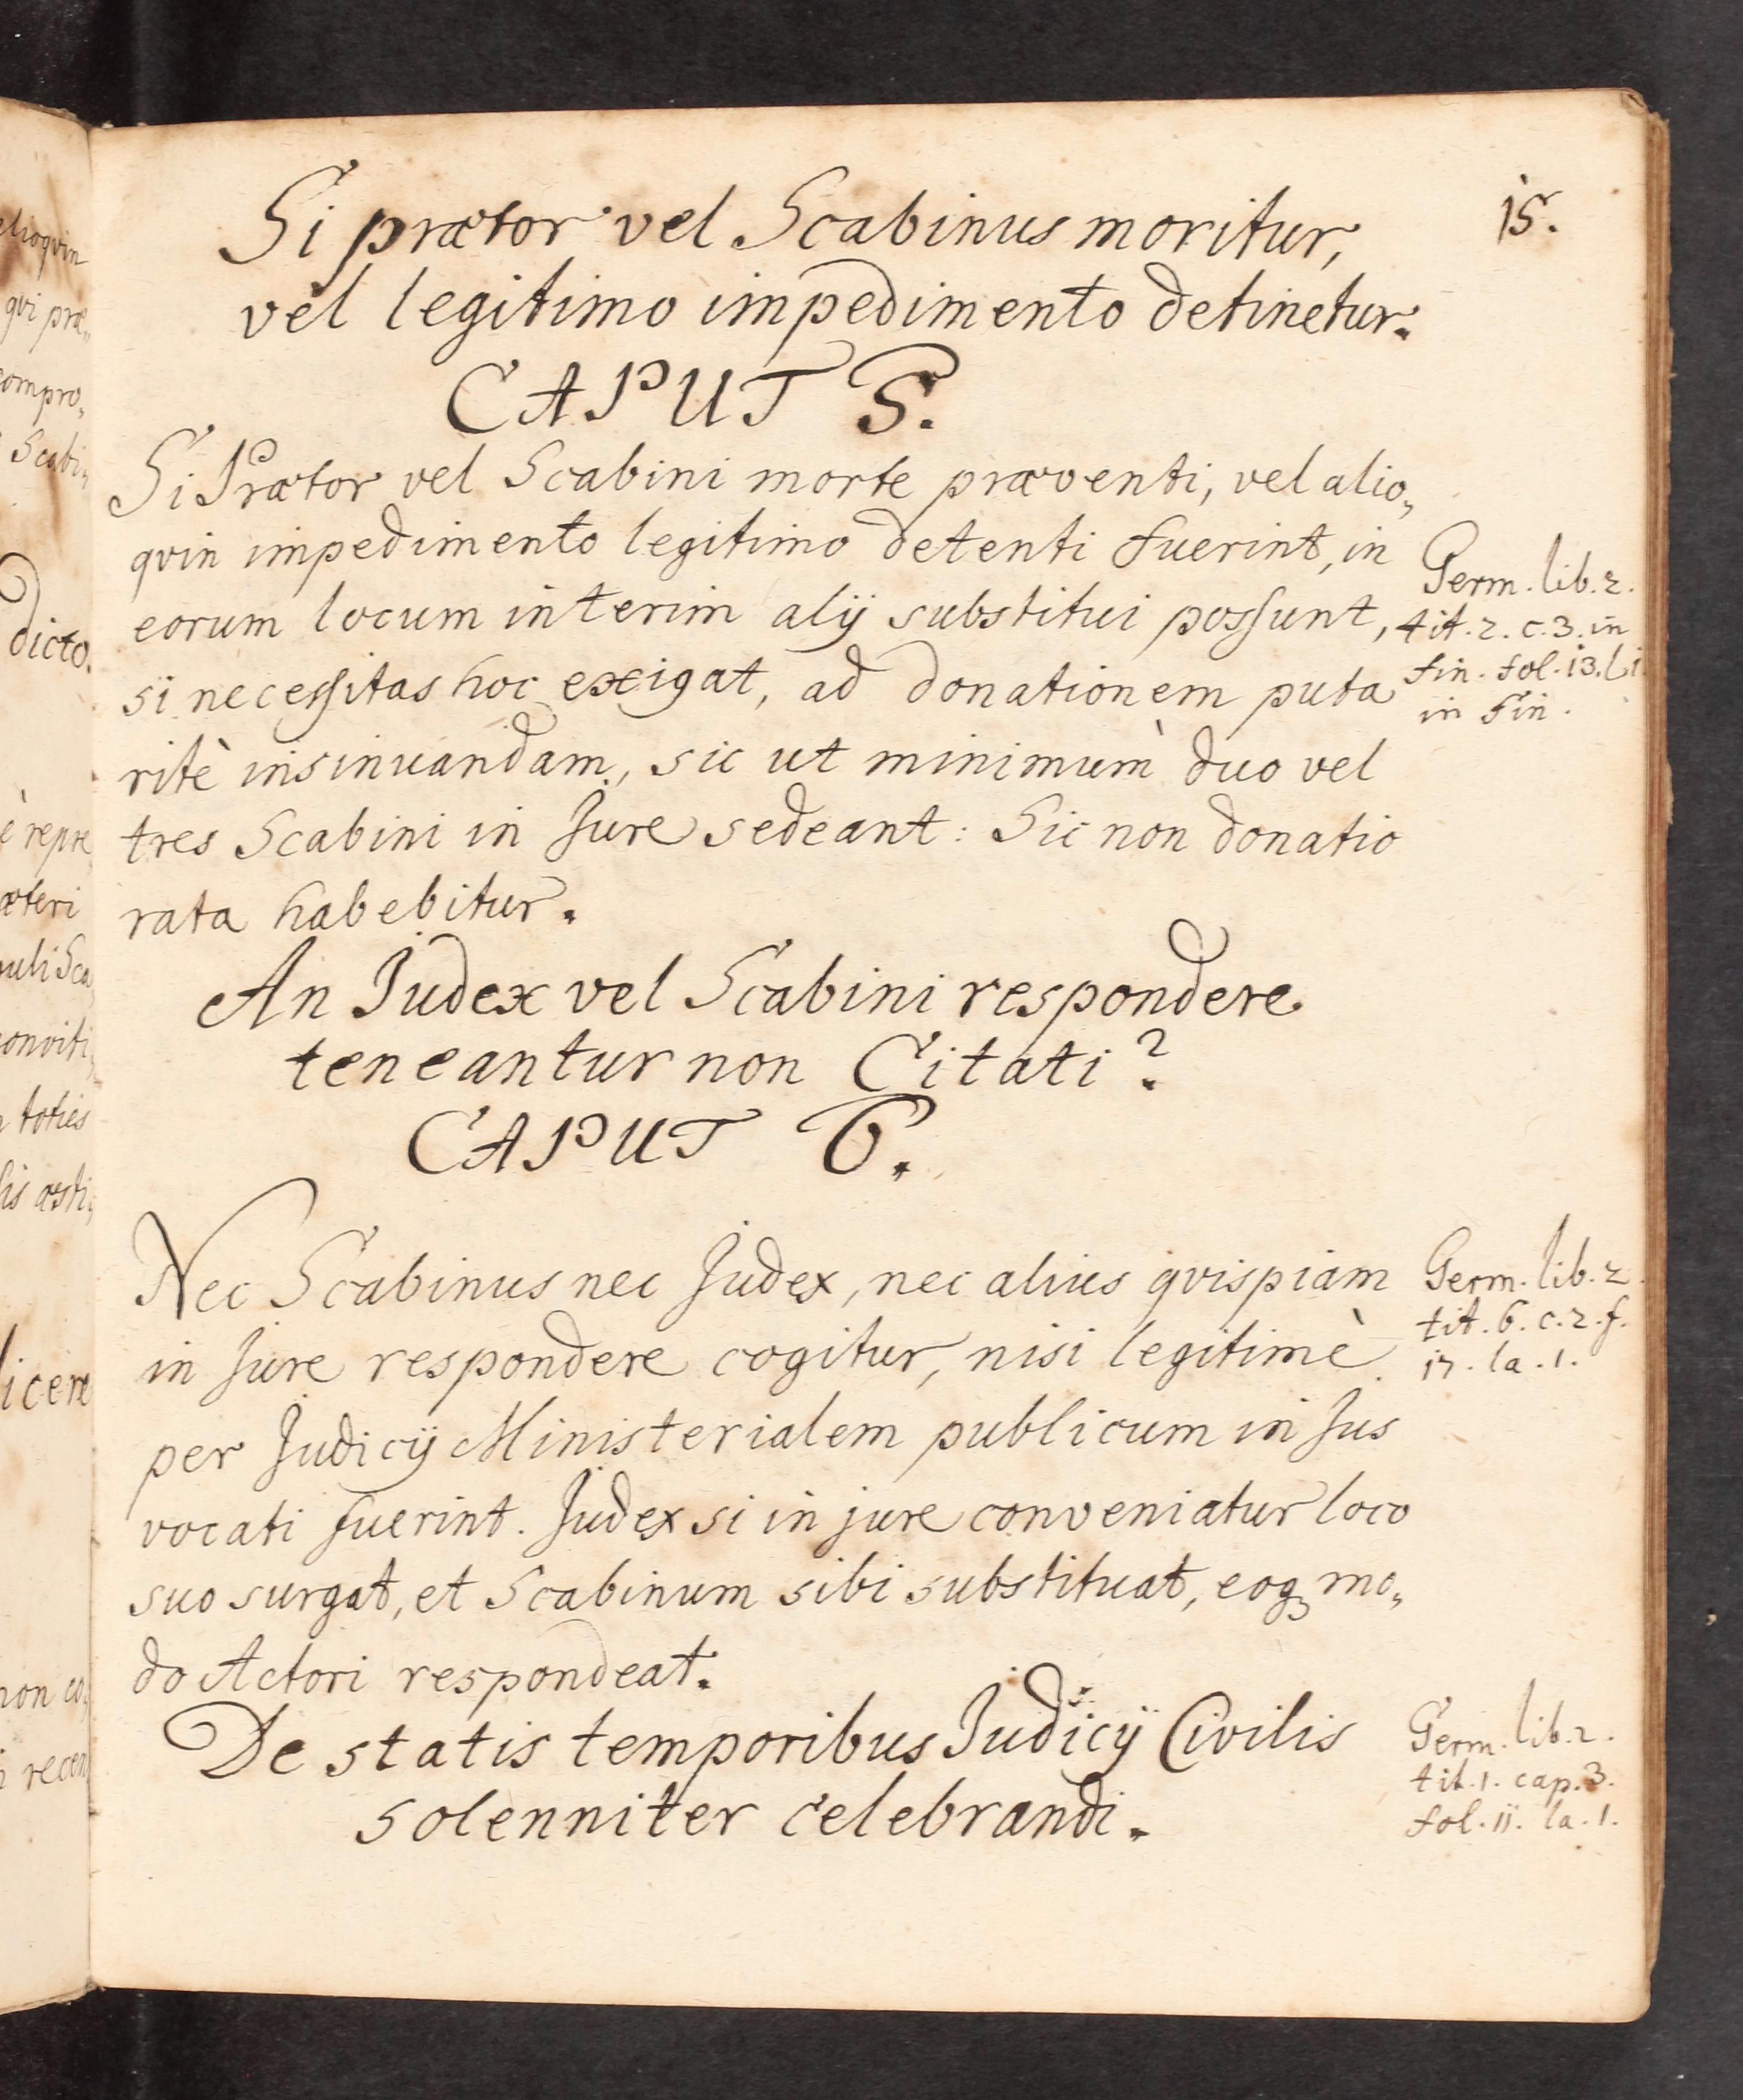 15.
Si prætor vel Scabinus moritur,
vel legitimo impedimento detinetur.
CAPUT 5.
Si Prætor vel Scabini morte præventi, vel alio„
qvin impedimento legitimo detenti fuerint, in
eorum locum interim alÿ substitui possunt,
si necessitas hoc exigat, ad donationem puta
ritè insinuandam, sic ut minimùm duo vel
tres Scabini in Jure sedeant: Sic non donatio
rata habebitur.
Germ. lib. 2.
tit. 2. c. 3. in
fin. fol. 13. l. 1
in fin.
An Judex vel Scabini respondere
teneantur non Citati?
CAPUT 6.
Nec Scabinus nec Judex, nec alius qvispiam
in Jure respondere cogitur, nisi legitimè
per Judicÿ Ministerialem publicum in Jus
vocati fuerint. Judex si in jure conveniatur loco
suo surgat, et Scabinum sibi substituat, eoq₃ mo„
do Actori respondeat.
Germ. lib. 2.
tit. 6. c. 2. f.
17. la. 1.
De statis temporibus Judicÿ Civilis
solenniter celebrandi.
Germ. lib. 2.
tit. 1. cap. 3.
fol. 11. la. 1.
elioqvin
qvi præ„
compro„
Scabi„
dicto.
è repre
æteri
conviti„
toties
licere
non co„